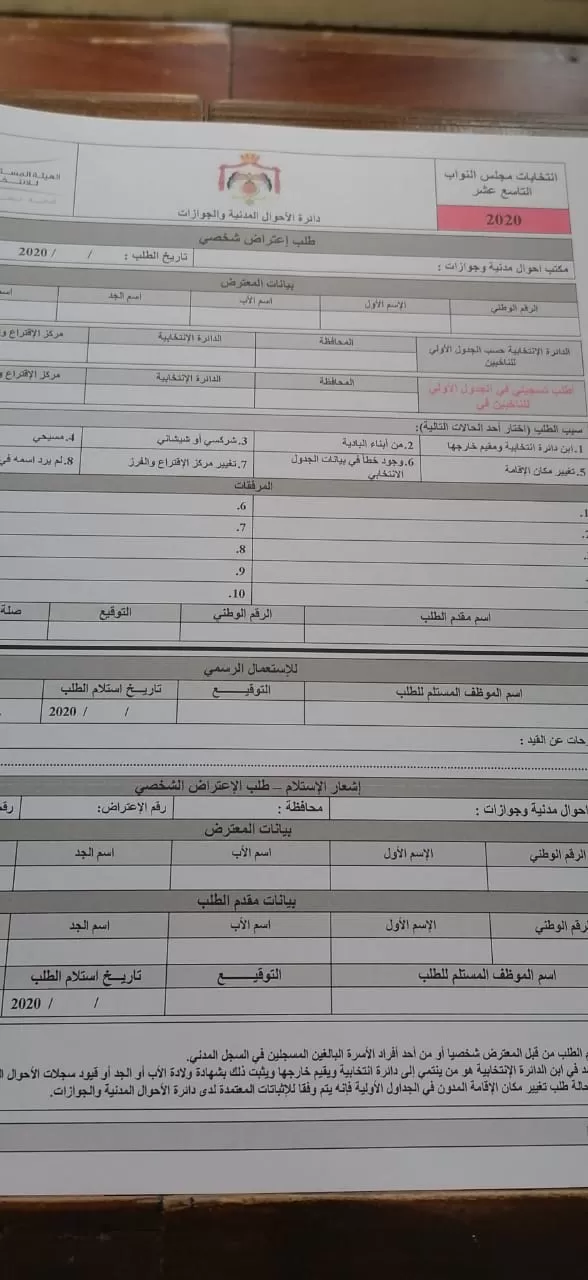 انتخابات مجلس النواب
التاسع عشر
2020
دائرة الأحوال المدنية والجوازات
الهيئة
طلب إعتراض شخصي
مكتب احوال مدنية وجوازات : تاريخ الطلب : / / 2020
بيانات المعترض
الرقم الوطني الإسم الأول اسم الأب اسم الجد
الدائرة الإنتخابية حسب الجدول الأولي للناخبين المحافظة الدائرة الإنتخابية مركز الإقتراع
اطلب تسجيلي في الجدول الأولي للناخبين في المحافظة الدائرة الإنتخابية مركز الإقتراع
سبب الطلب (اختار أحد الحالات التالية):
1.ابن دائرة انتخابية ومقيم خارجها 2.من أبناء البادية 3.شركسي أو شيشاني 4.مسيحي
5.تغيير مكان الإقامة 6.وجود خطأ في بيانات الجدول الانتخابي 7.تغيير مركز الإقتراع والفرز 8.لم يرد اسمه في
المرفقات
1. 6.
7.
8.
9.
10.
اسم مقدم الطلب الرقم الوطني التوقيع صلة
للإستعمال الرسمي
اسم الموظف المستلم للطلب التوقيــــع تاريــخ استلام الطلب
/ / 2020
عن القيد :
إشعار الإستلام – طلب الإعتراض الشخصي
احوال مدنية وجوازات : محافظة : رقم الإعتراض:
بيانات المعترض
الرقم الوطني الإسم الأول اسم الأب اسم الجد
بيانات مقدم الطلب
الرقم الوطني الإسم الأول اسم الأب اسم الجد
اسم الموظف المستلم للطلب التوقيــــع تاريــخ استلام الطلب
/ / 2020
الطلب من قبل المعترض شخصيا أو من احد أفراد الأسرة البالغين المسجلين في السجل المدني.
في ابن الدائرة الإنتخابية هو من ينتمي إلى دائرة انتخابية ويقيم خارجها ويثبت ذلك بشهادة ولادة الأب أو الجد أو قيود سجلات الأحوال
حالة طلب تغيير مكان الإقامة المدون في الجداول الأولية فإنه يتم وفقا للإثباتات المعتمدة لدى دائرة الأحوال المدنية والجوازات.